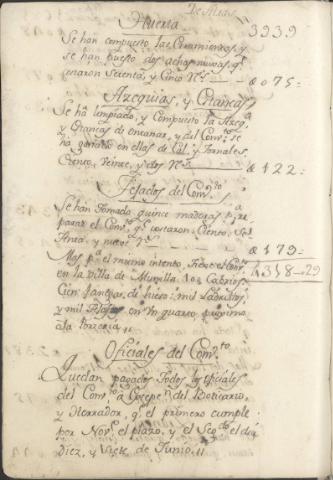 De Atras
Huerta 3939
Se han compuesto las Cerramientos y
se han puesto dos achas nuevas, qᵉ
costaron Setenta, y Cinco Rˢ - - - @ 075=
Azequias, y Estancas
Se hã limpiado, y Compuesto la Azeqª
y Estancas de entrambas, y del Convᵗᵒ, se
ha gastado en ellas de Cal, y Jornales,
Ciento, Veinte, y dos Rˢ - - - @ 122=
Tejados del Convᵗᵒ
Se han Tomado quince maderas pª re
parar el Convᵗᵒ qᵉ costaron Ciento, Se
tenta, y nueve Rˢ - - - @ 179=
Mas pª el mismo intento, tiene el Convᵗᵒ 4318-29
en la Villa de Munilla 102 Cabrios
mil Ladrillos,
y mil Tejas en Un quarto proximo
à la Porteria 11
Oficiales del Convᵗᵒ
Quedan pagados Todos los oficiales
del Convᵗᵒ à Excepᵒⁿ del Boticario,
y Herrador, qᵉ el primero cumple
por Novᵉ el plazo, y el Segᵈᵒ el dia
diez, y Siete de Junio. 11